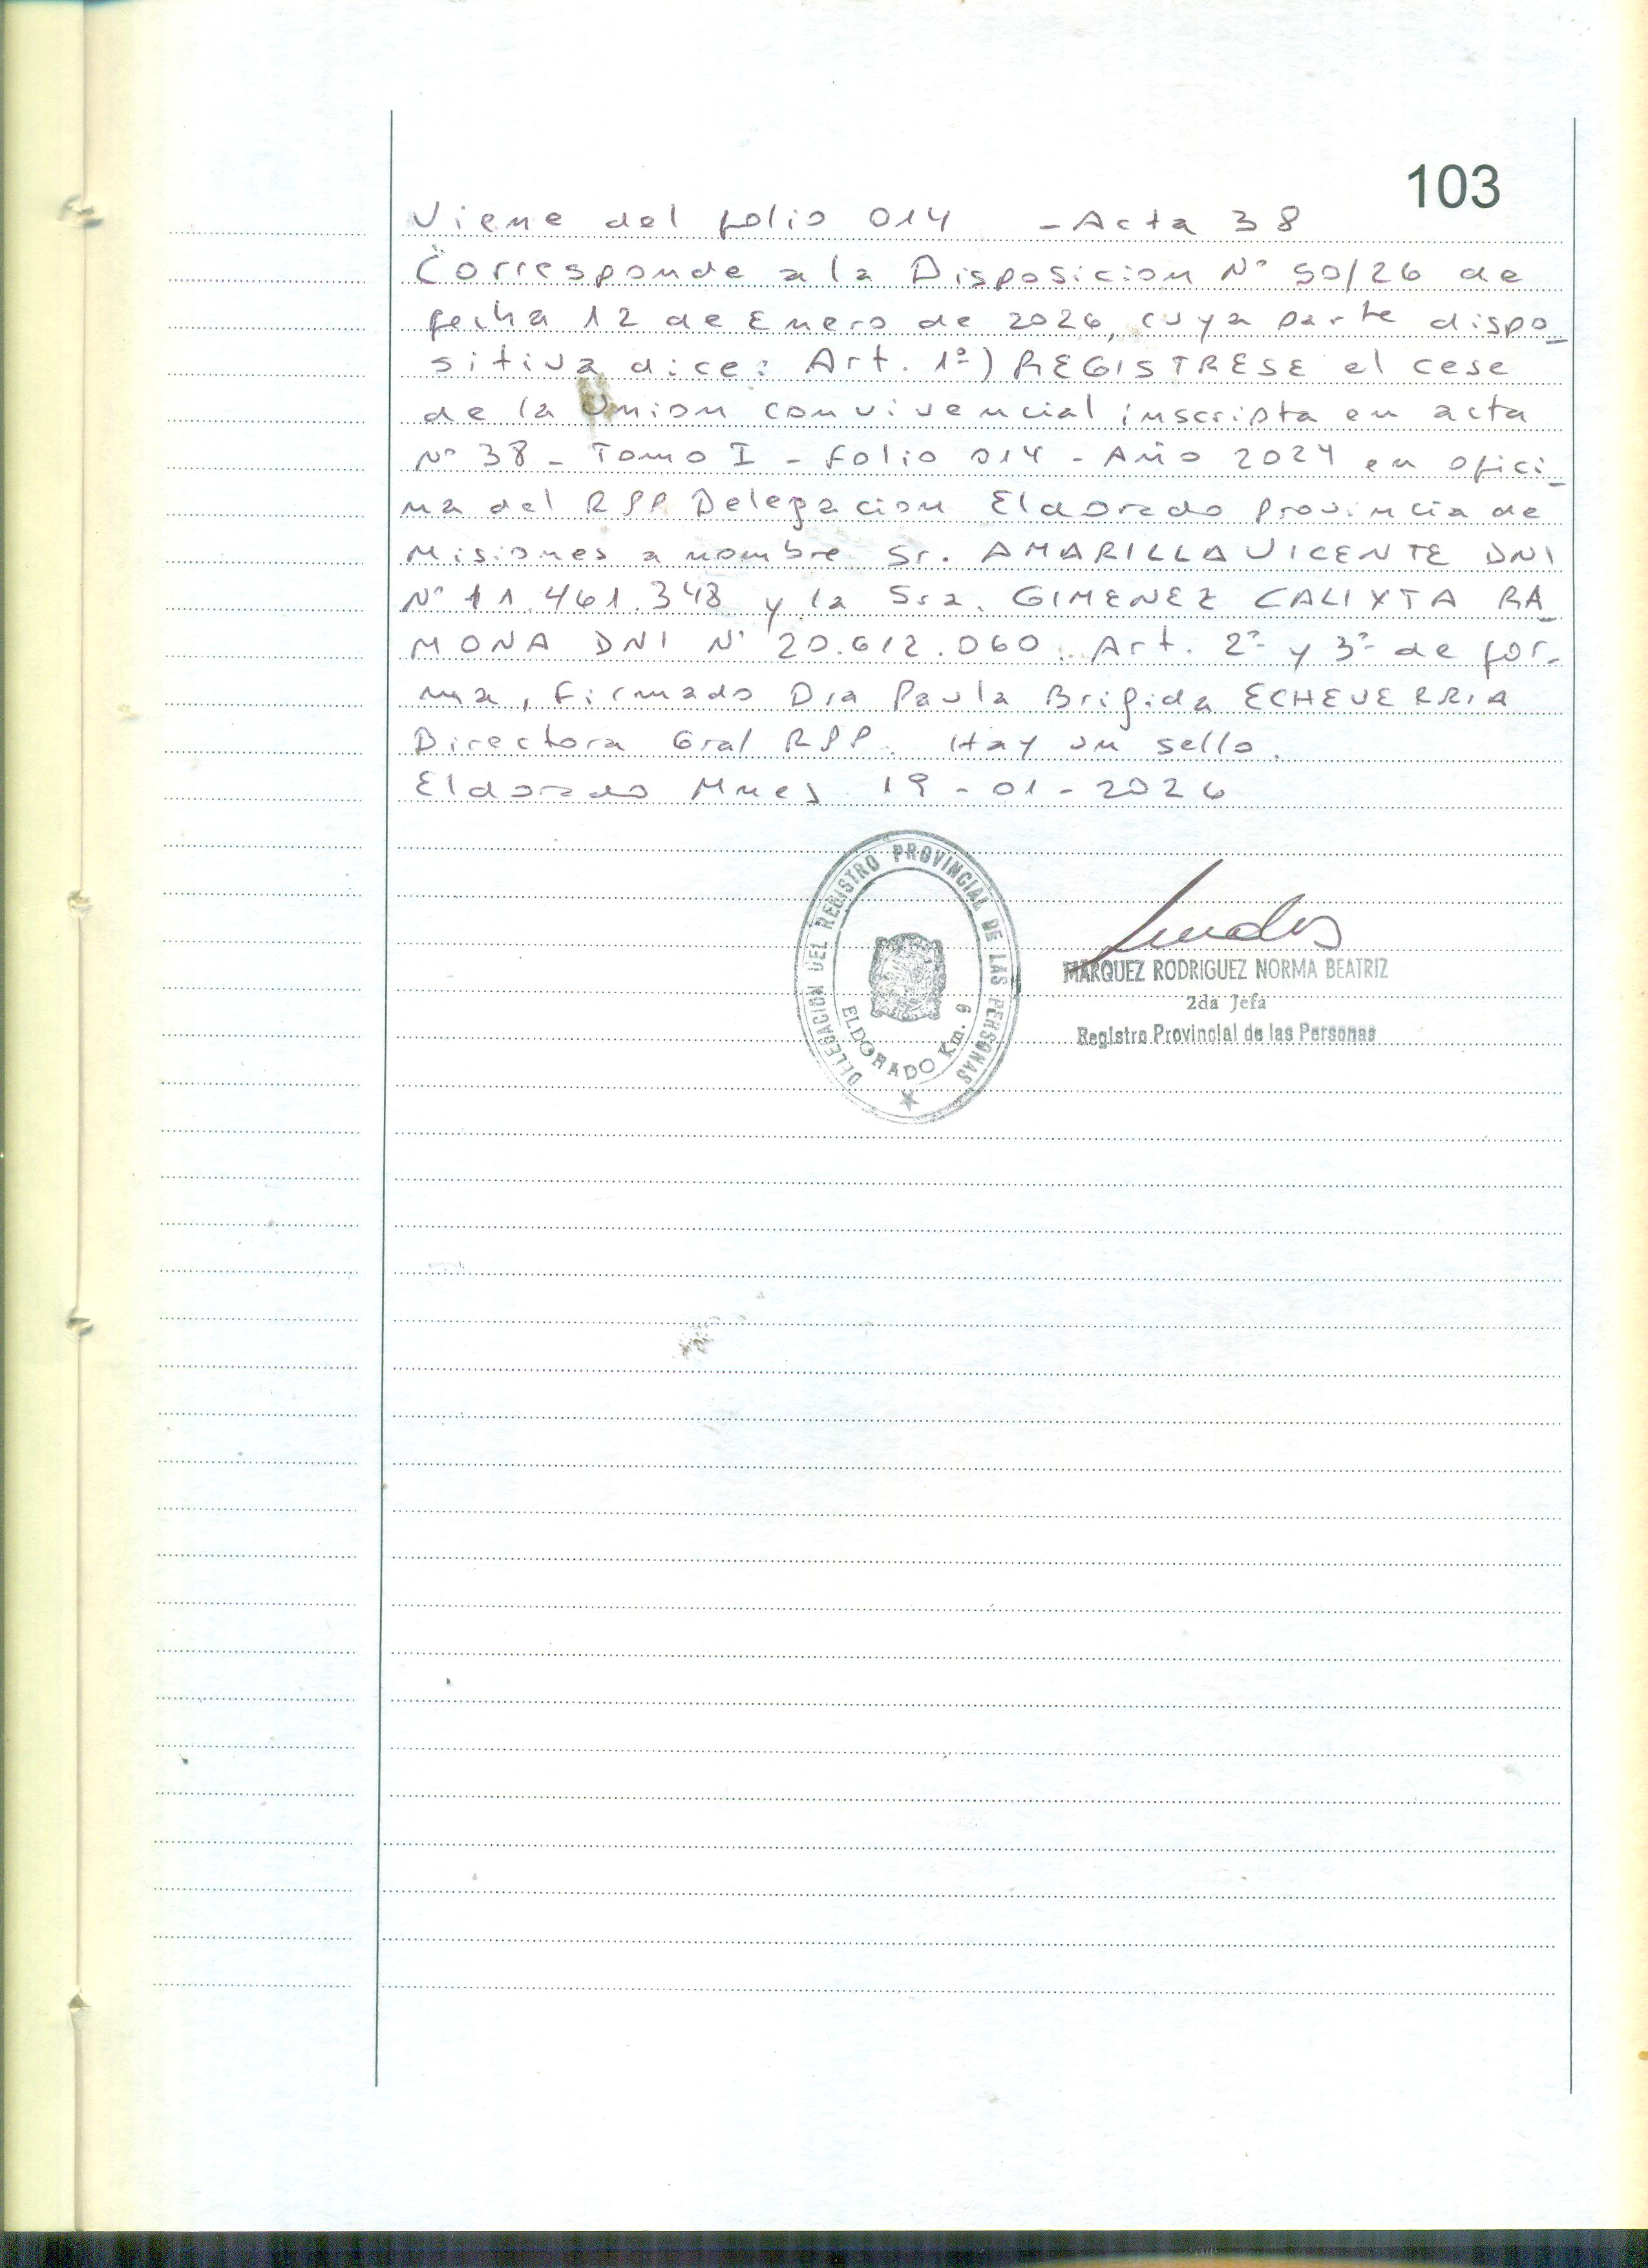 103
Viene del folio 014 - Acta 38
Corresponde a la Disposicion N° 50/26 de
fecha 12 de Enero de 2026, cuya parte dispo-
sitiva dice: Art. 1º) REGISTRESE el cese
de la Union convivencial inscripta en acta
N° 38 - Tomo I - Folio 014 - Año 2024 en ofici-
na del RPP Delegacion Eldorado Provincia de
Misiones a nombre Sr. AMARILLA VICENTE DNI
N° 11.461.348 y la Sra. GIMENEZ CALIXTA RA-
MONA DNI N° 20.612.060. Art. 2º y 3º de for-
ma, Firmado Dra Paula Brigida ECHEVERRIA
Directora Gral RPP. Hay un sello.
Eldorado Mnes 19-01-2026
DELEGACION DEL REGISTRO PROVINCIAL DE LAS PERSONAS
ELDORADO Km. 9
MARQUEZ RODRIGUEZ NORMA BEATRIZ
2da Jefa
Registro Provincial de las Personas